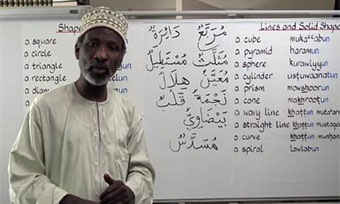 Shapes
a square
circle
triangle
a rectangle
a diamond
مُرَبَّعٌ دَائِرَةٌ
مُثَلَّثٌ مُسْتَطِيلٌ
مُعَيَّنٌ هِلَالٌ
نَجْمَةٌ قَلْبٌ
بَيْضَاوِيٌّ
مُسَدَّسٌ
Lines and Solid Shape
a cube mukaᶜᶜabun
a pyramid haramun
a sphere kurawiyyun
a cylinder ustuwaanatun
a prism mawshoorun
a cone makhrootun
a wavy line khattun
a straight line khattun
a curve khattun
a spiral lawlabun